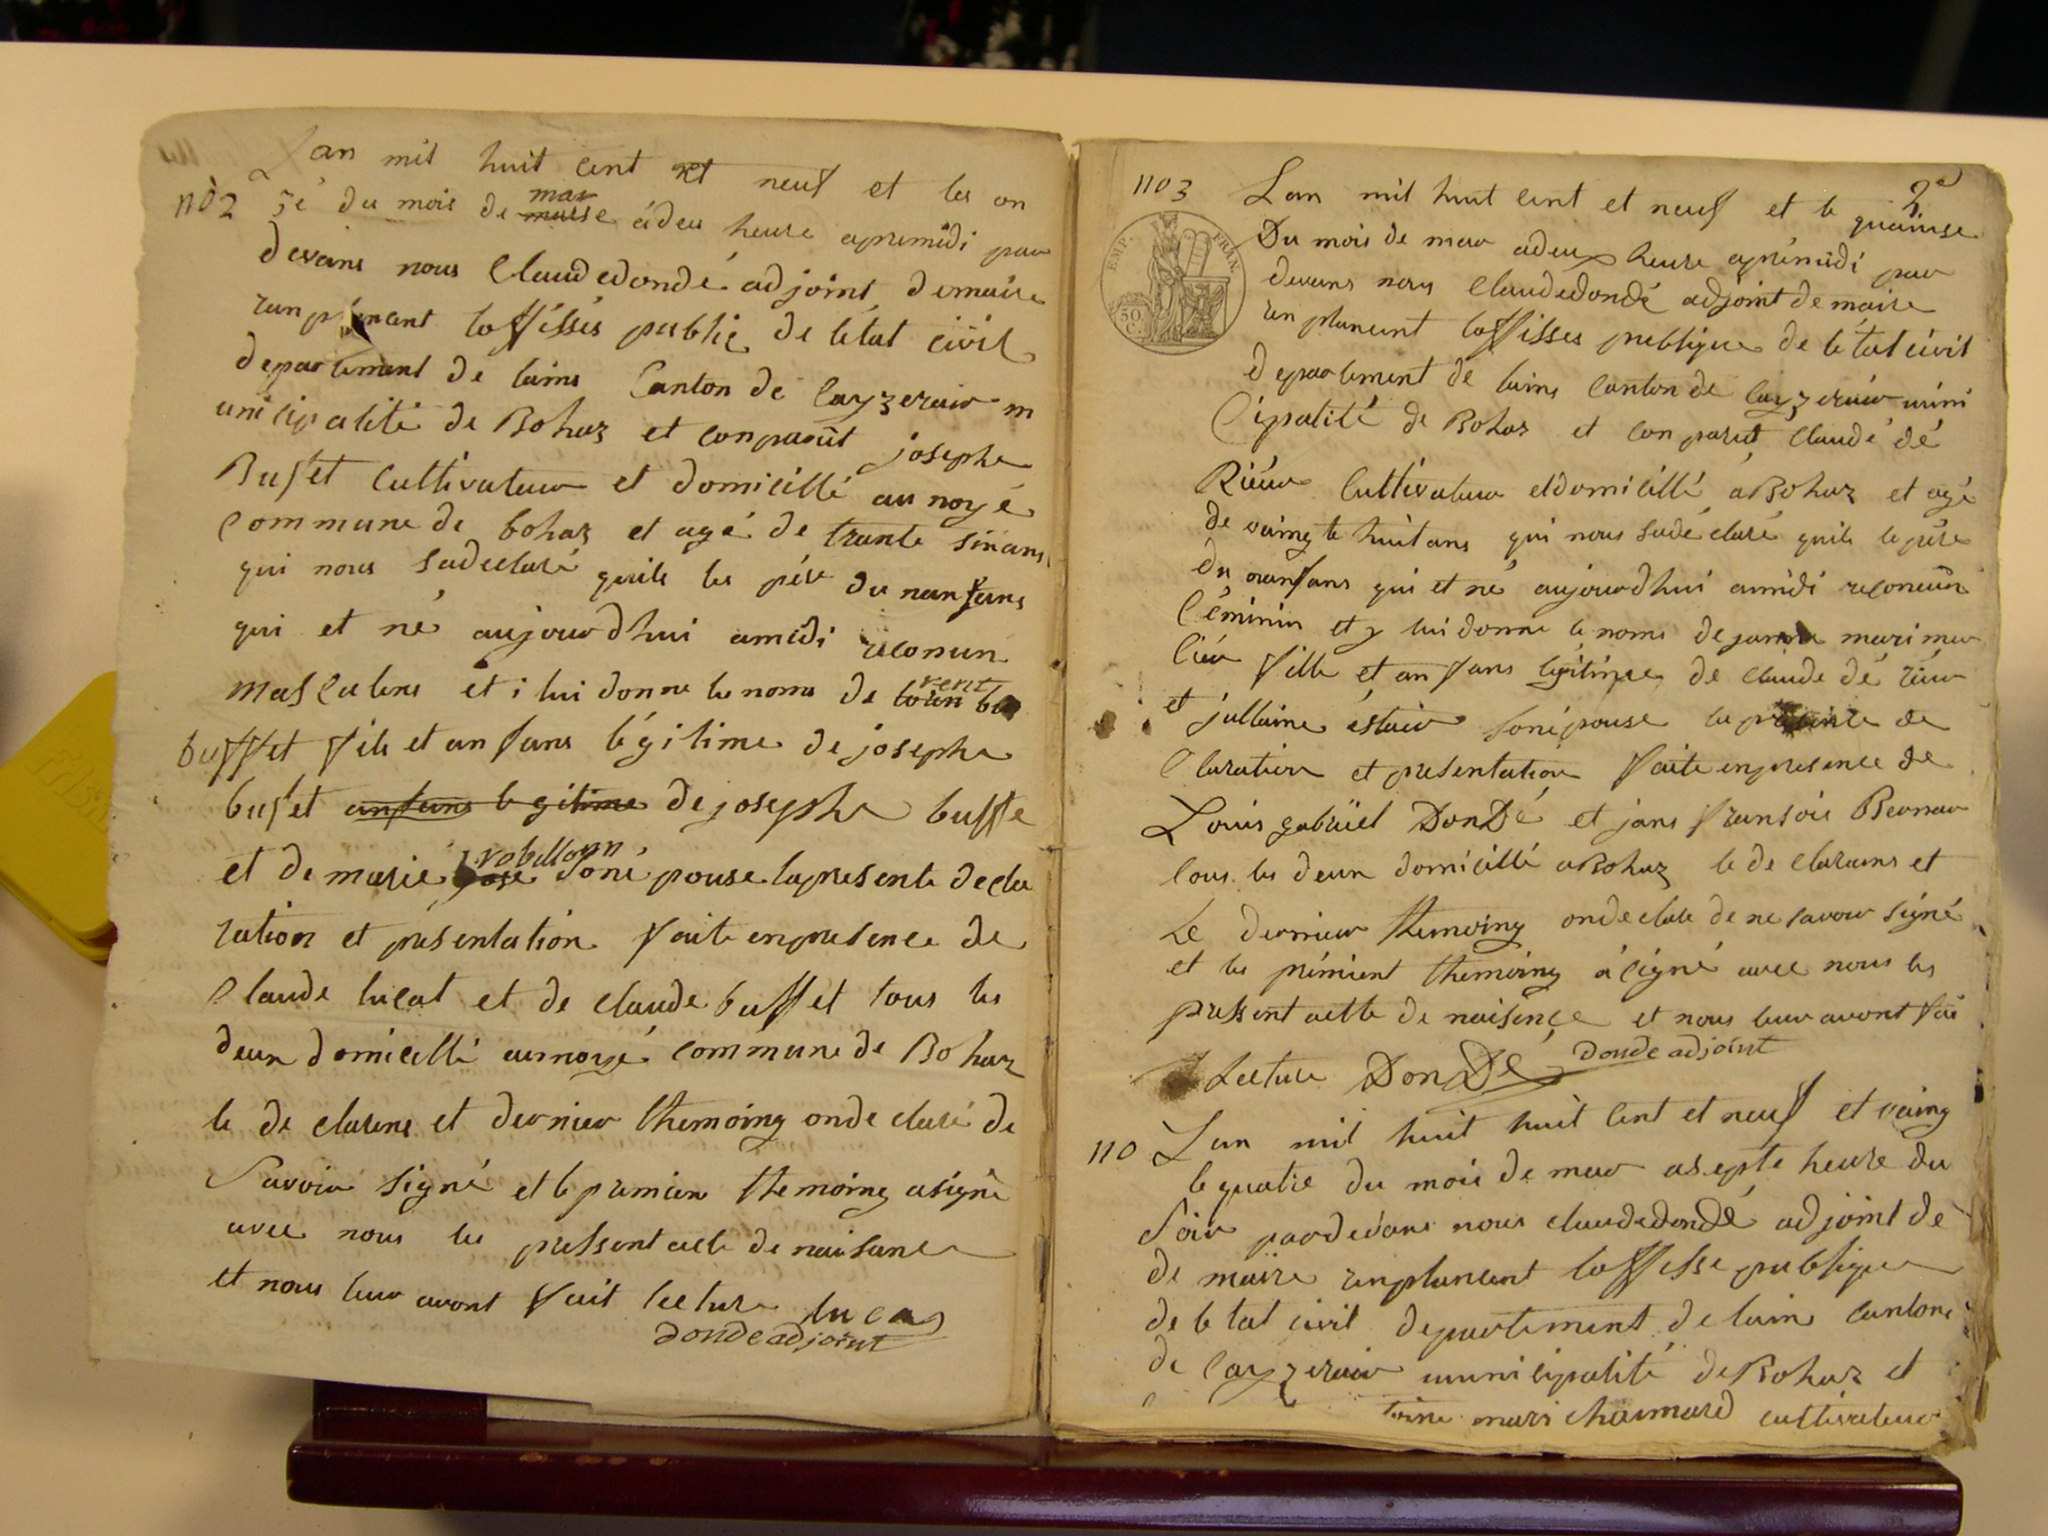 Lan mil huit cent et neuf et les on
1102 zé du mois de marse mar à deu heure apremidi par
devans nous Claudedondé adjoint demaire
ranp nent loffissés public de létat civil
departement de lains Canton de Cayzeraiw m
unicipalité de Bohaz et conparoit josephe
Bufet Cultivateur et domicillé au noyé
Commune de bohaz et agé de trante sinans
qui nous sadeclaré quils les pére du nanfans
qui et né aujourdhui amidi reconun
masculens et i lui donne les noms de lorent
buffet fils et anfans légitime de josephe
bufet anfans legitime de josephe buffte
et de marie robilloun sone pouse lapresente decla
ration et présentation faite enpresence de
Claude lucat et de claude buffet tous les
deun domicillé aunoyé commune de Bohaz
le de clarens et dernier themoing onde claré de
savoir signé et le premier themoing asigné
avec nous les pressent acte de naisance
et nous leur avont fait lecture lucas
donde adjoint
2e
1103 Lan mil huit cent et neuf et le quainse
Du mois de mar adeux heure aprémidi par
devans nous claudedondé adjoint de maire
ranplaneint loffisses publique de létat civil
departement de lains canton de Cayzeraiw muni
Cipalité de Bohas et conparut claudé dé
Riéur Cultivateur et domicillé à Bohaz et agé
de vaingte huit ans qui nous sadéclaré quils le pére
du nanfans qui et né aujourdhui amidi reconeün
féminin et y lui donne le noms de janne mari mer
cier fille et anfans légitime de claude dé rieur
et jullaine éstaiw sonépouse la présente de
Claration et presentation faite enpresence de
Louis gabriel DonDé et jans fransois Bernar
tous les deun domicillé aBohaz le de clarans et
Le dernier themoing ondeclare de ne savoir signé
et les prémient themoing à signé avec nous les
pressent actte de naisençe et nous leur avont fai
Lecture DonDé donde adjoint
110 Lan mil huit huit cent et neuf et vaing
le quatre du mois de mar asepte heure du
Soir pardevans nous claudedondé adjoint de
de maire ranplaneint loffisse publique
de le tat civil departement de lain cantone
de Cayzeraiw municipalité de Bohaz et
toine mari chaumard cultivateur
EMP. FRAN.
50 C.